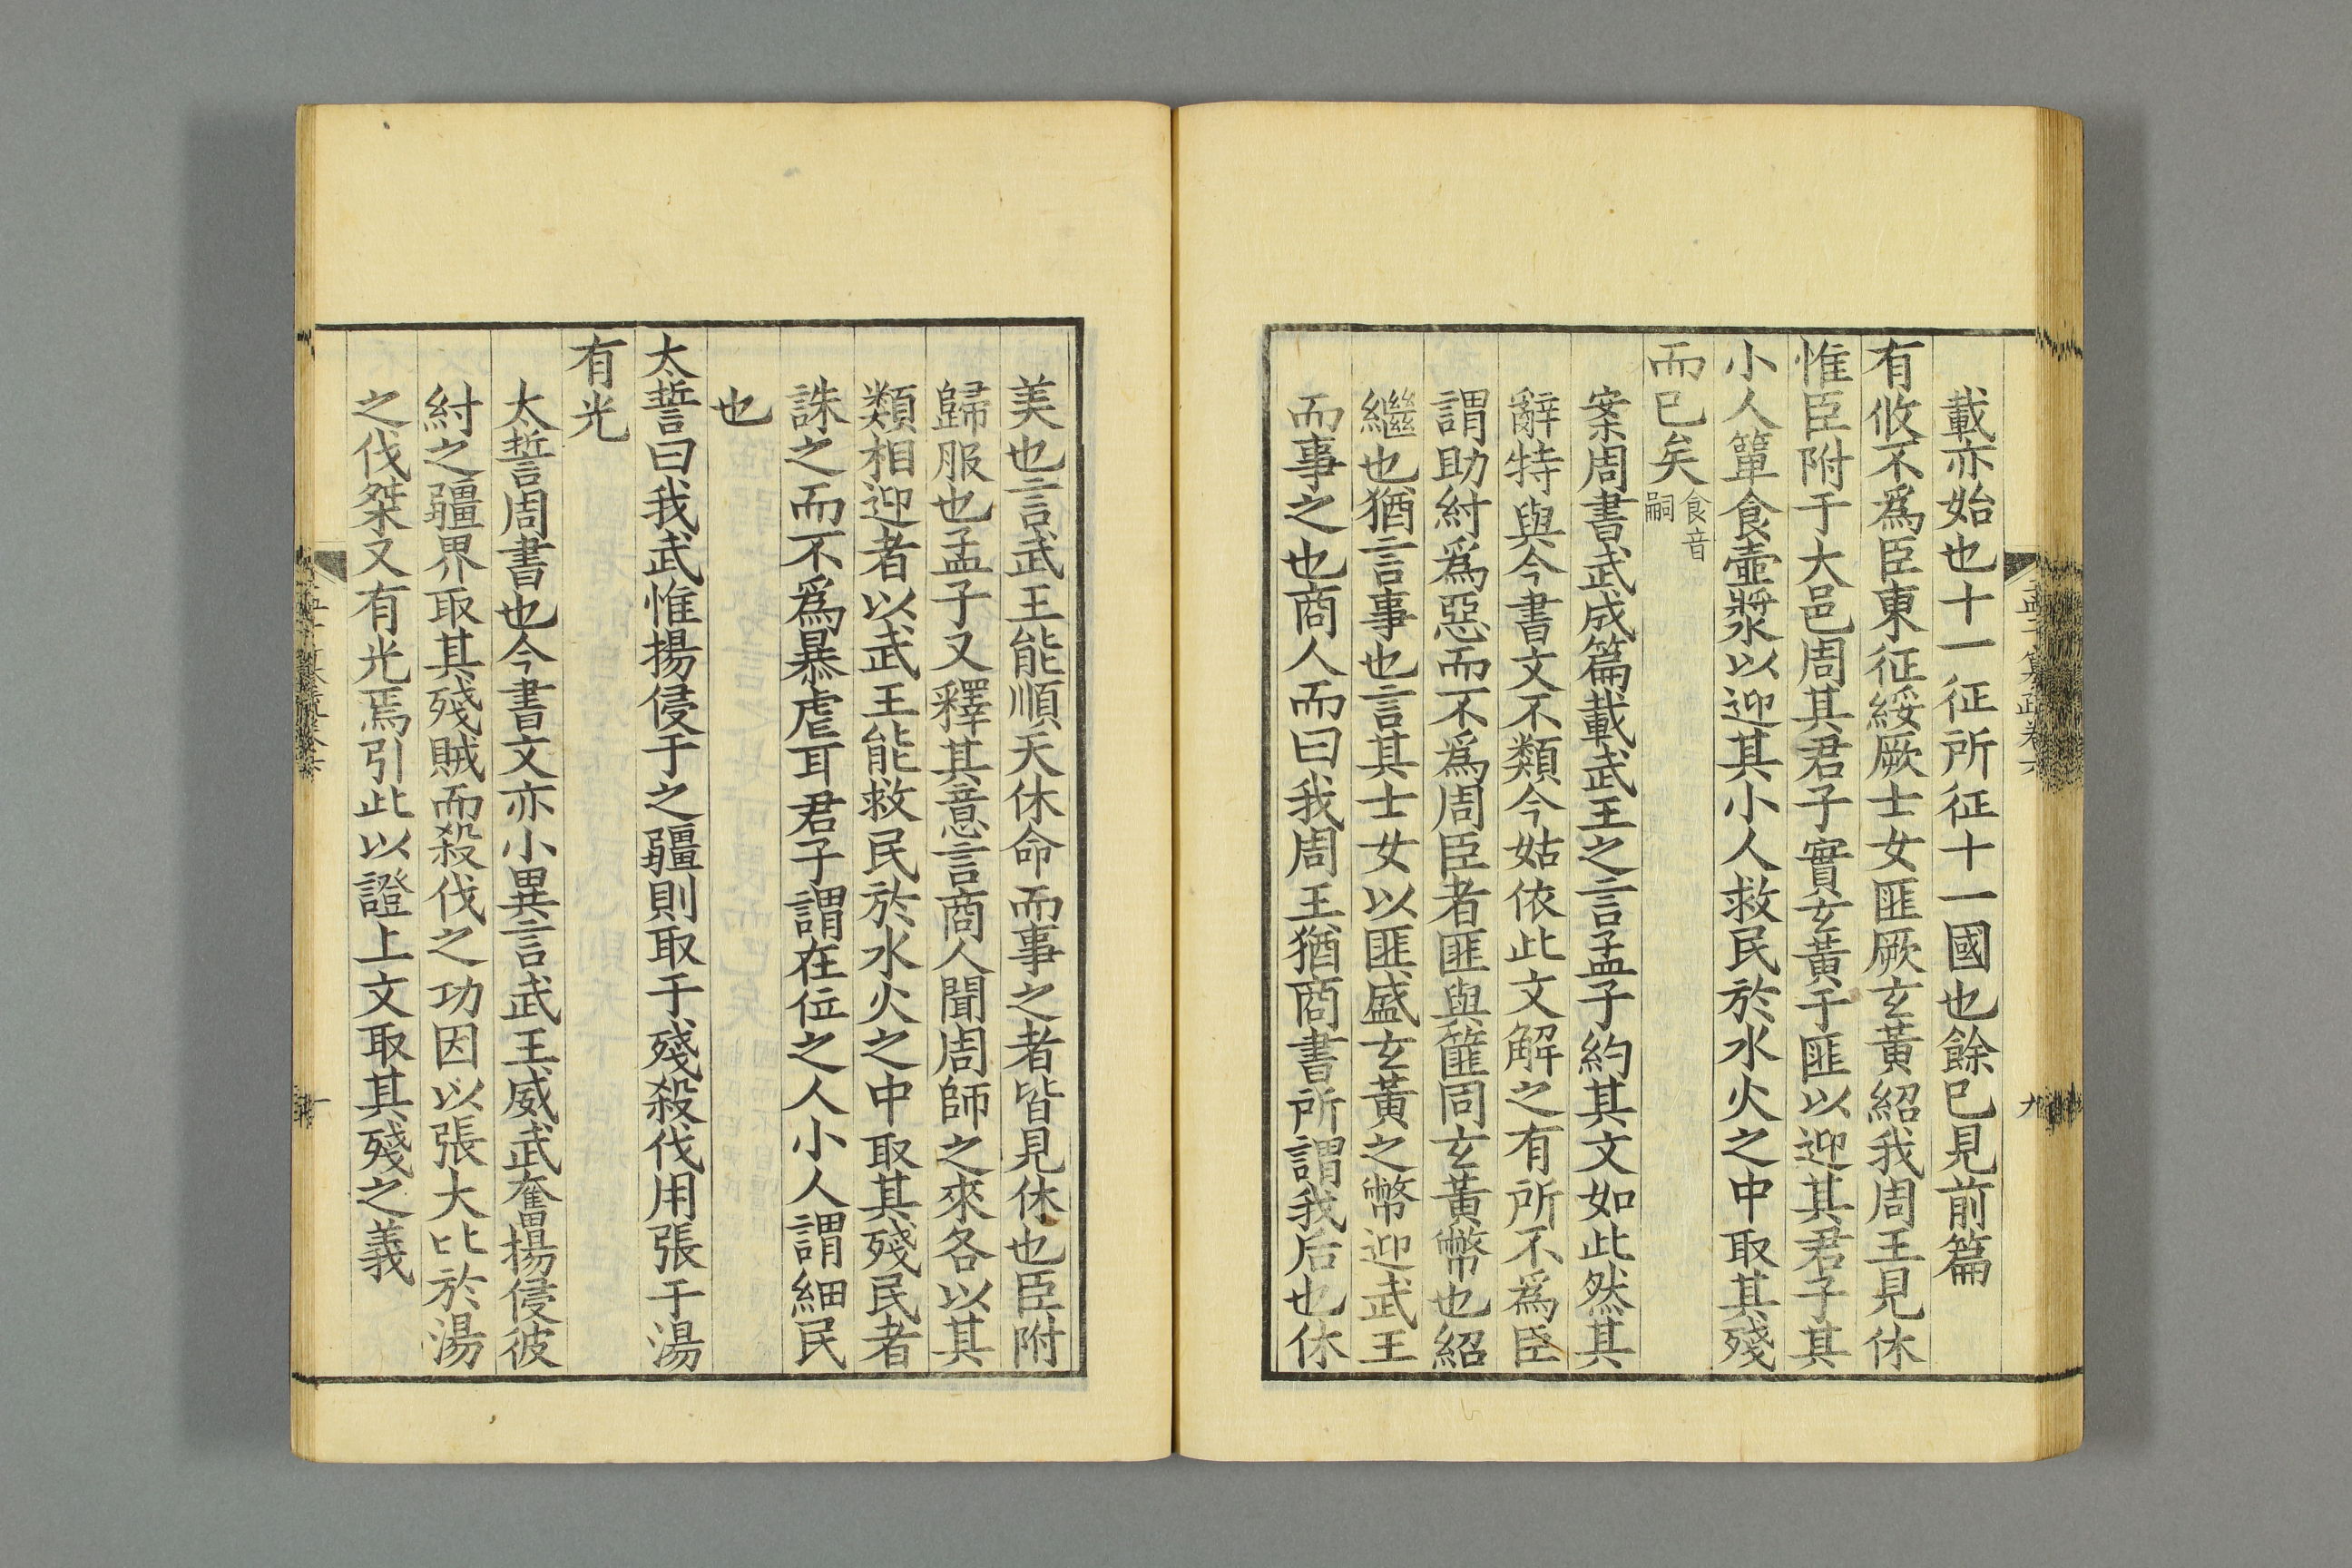 載亦始也十一征所征十一國也餘已見前篇
有攸不爲臣東征綏厥士女匪厥玄黃紹我周王見休
惟臣附于大邑周其君子實玄黃于匪以迎其君子其
小人簞食壺漿以迎其小人救民於水火之中取其殘
而已矣食音嗣
案周書武成篇載武王之言孟子約其文如此然其
辭特與今書文不類今姑依此文解之有所不爲臣
謂助紂爲惡而不爲周臣者匪與篚同玄黃幣也紹
繼也猶言事也言其士女以匪盛玄黃之幣迎武王
而事之也商人而曰我周王猶商書所謂我后也休
美也言武王能順天休命而事之者皆見休也臣附
歸服也孟子又釋其意言商人聞周師之來各以其
類相迎者以武王能救民於水火之中取其殘民者
誅之而不爲暴虐耳君子謂在位之人小人謂細民
也
太誓曰我武惟揚侵于之疆則取于殘殺伐用張于湯
有光
太誓周書也今書文亦小異言武王威武奮揚侵彼
紂之疆界取其殘賊而殺伐之功因以張大比於湯
之伐桀又有光焉引此以證上文取其殘之義